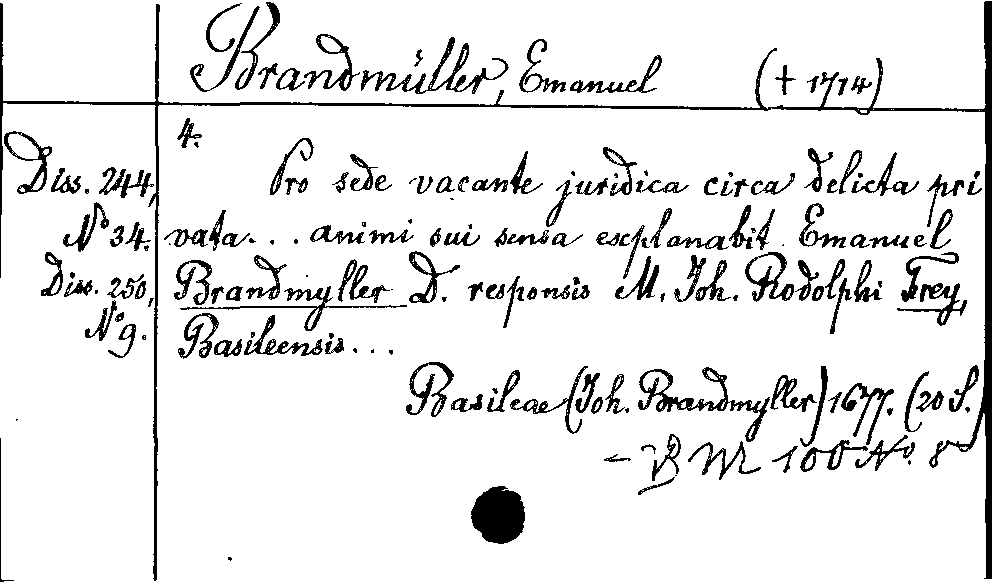 Brandmüller, Emanuel († 1714)
4.
Diss. 244, Pro sede vacante juridica circa delicta pri
No 34. vata... animi sui sensa explanabit Emanuel
Diss. 250, Brandmyller D. responsis M. Joh. Rodolphi Frey,
No 9. Basileensis...
Basileae (Joh. Brandmyller) 1677. (20 S.)
- BM 100 No. 8